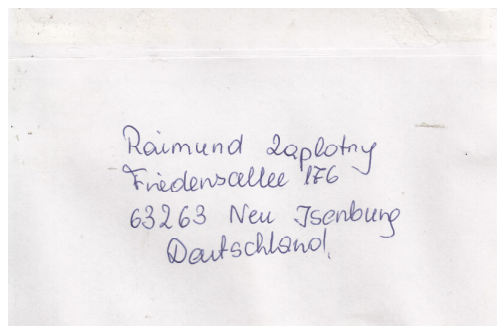 Raimund Zaplotny
Friedensallee 176
63263 Neu Isenburg
Deutschland